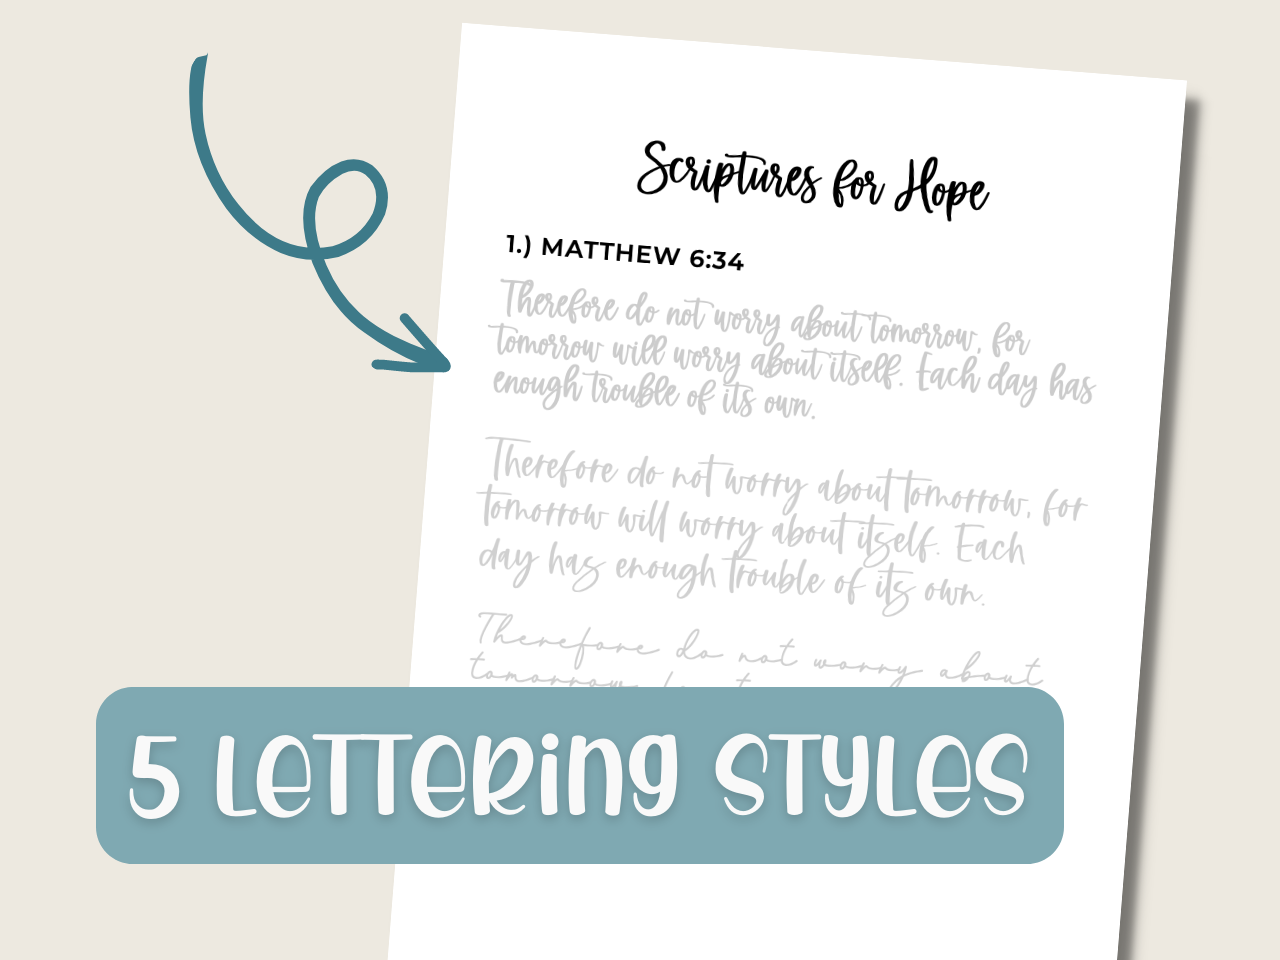 Scriptures for Hope
1.) MATTHEW 6:34
Therefore do not worry about tomorrow, for
tomorrow will worry about itself. Each day has
enough trouble of its own.
Therefore do not worry about tomorrow, for
tomorrow will worry about itself. Each
day has enough trouble of its own.
Therefore do not worry about
tomorrow
5 LETTERING STYLES